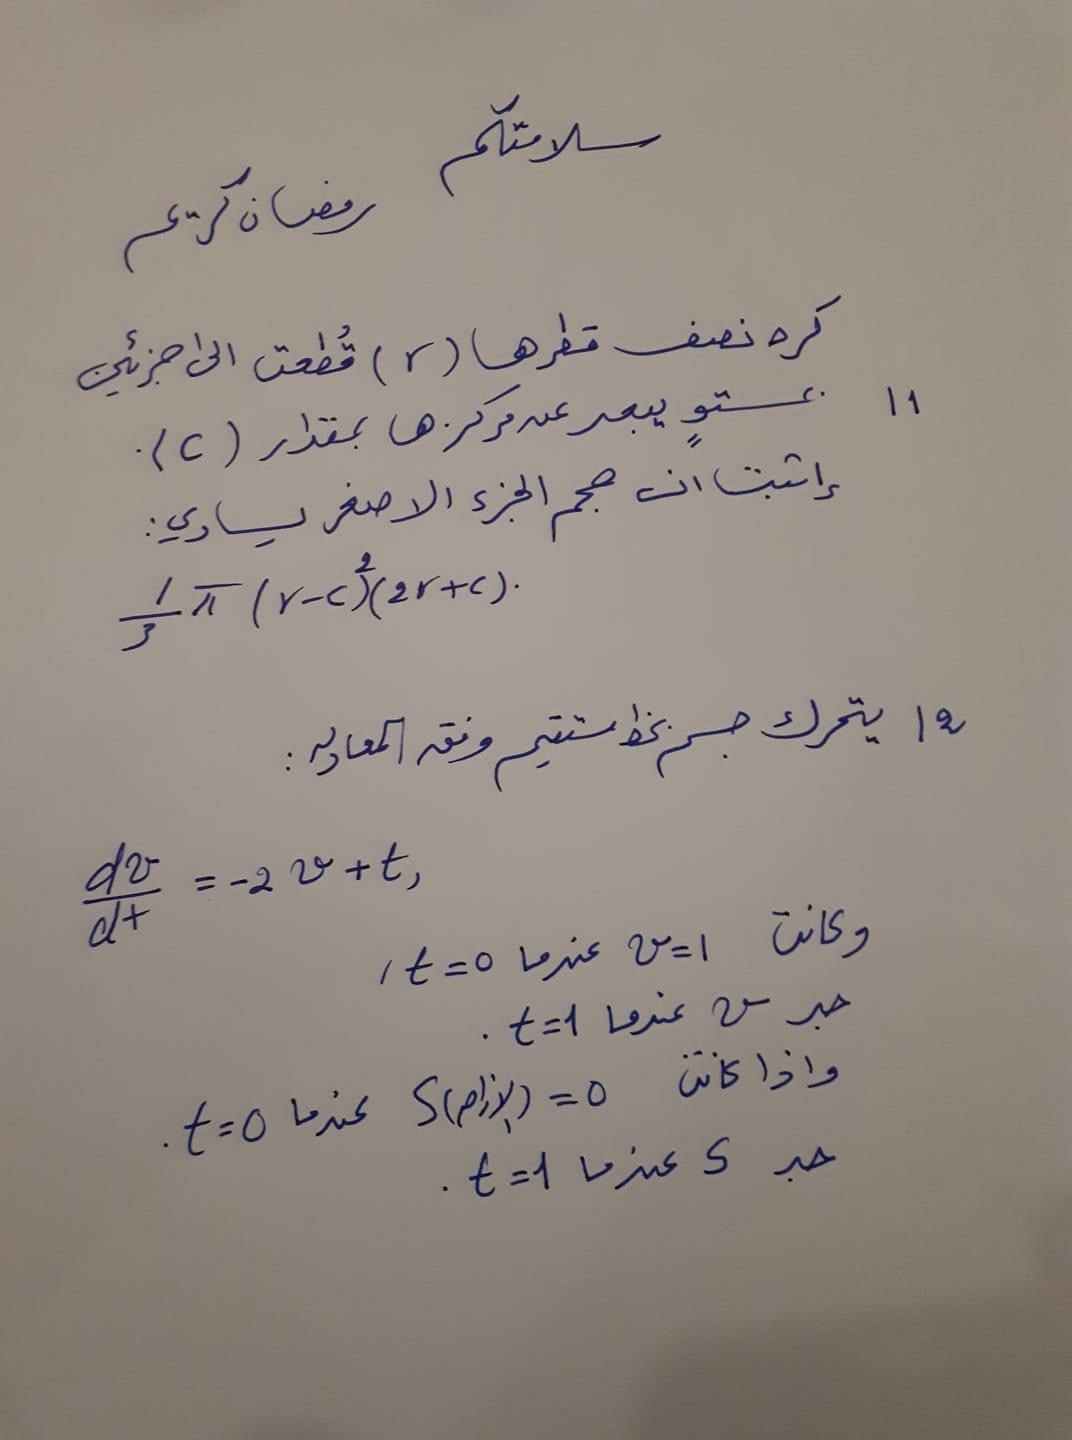 سلامتكم
رمضان كريم
كره نصف قطرها (r) قُطعت الى جزئين
1\ بمستوٍ يبعد عن مركزها بمقدار (c).
إثبت ان حجم الجزء الاصغر يساوي:
1/3 π (r-c)²(2r+c).
2\ يتحرك جسم بخط مستقيم وفق المعادله:
dv/dt = -2v+t,
وكانت v=1 عندما t=0,
جد v عندما t=1.
واذا كانت S(الازاحه)=0 عندما t=0.
جد S عندما t=1.